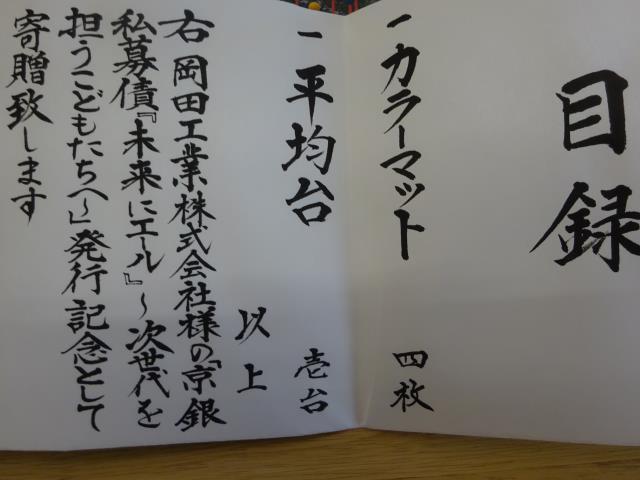 目録
一 カラーマット 四枚
一 平均台 壱台
以上
右 岡田工業株式会社様の「京銀
私募債『未来にエール』～次世代を
担うこどもたちへ～」発行記念として
寄贈致します